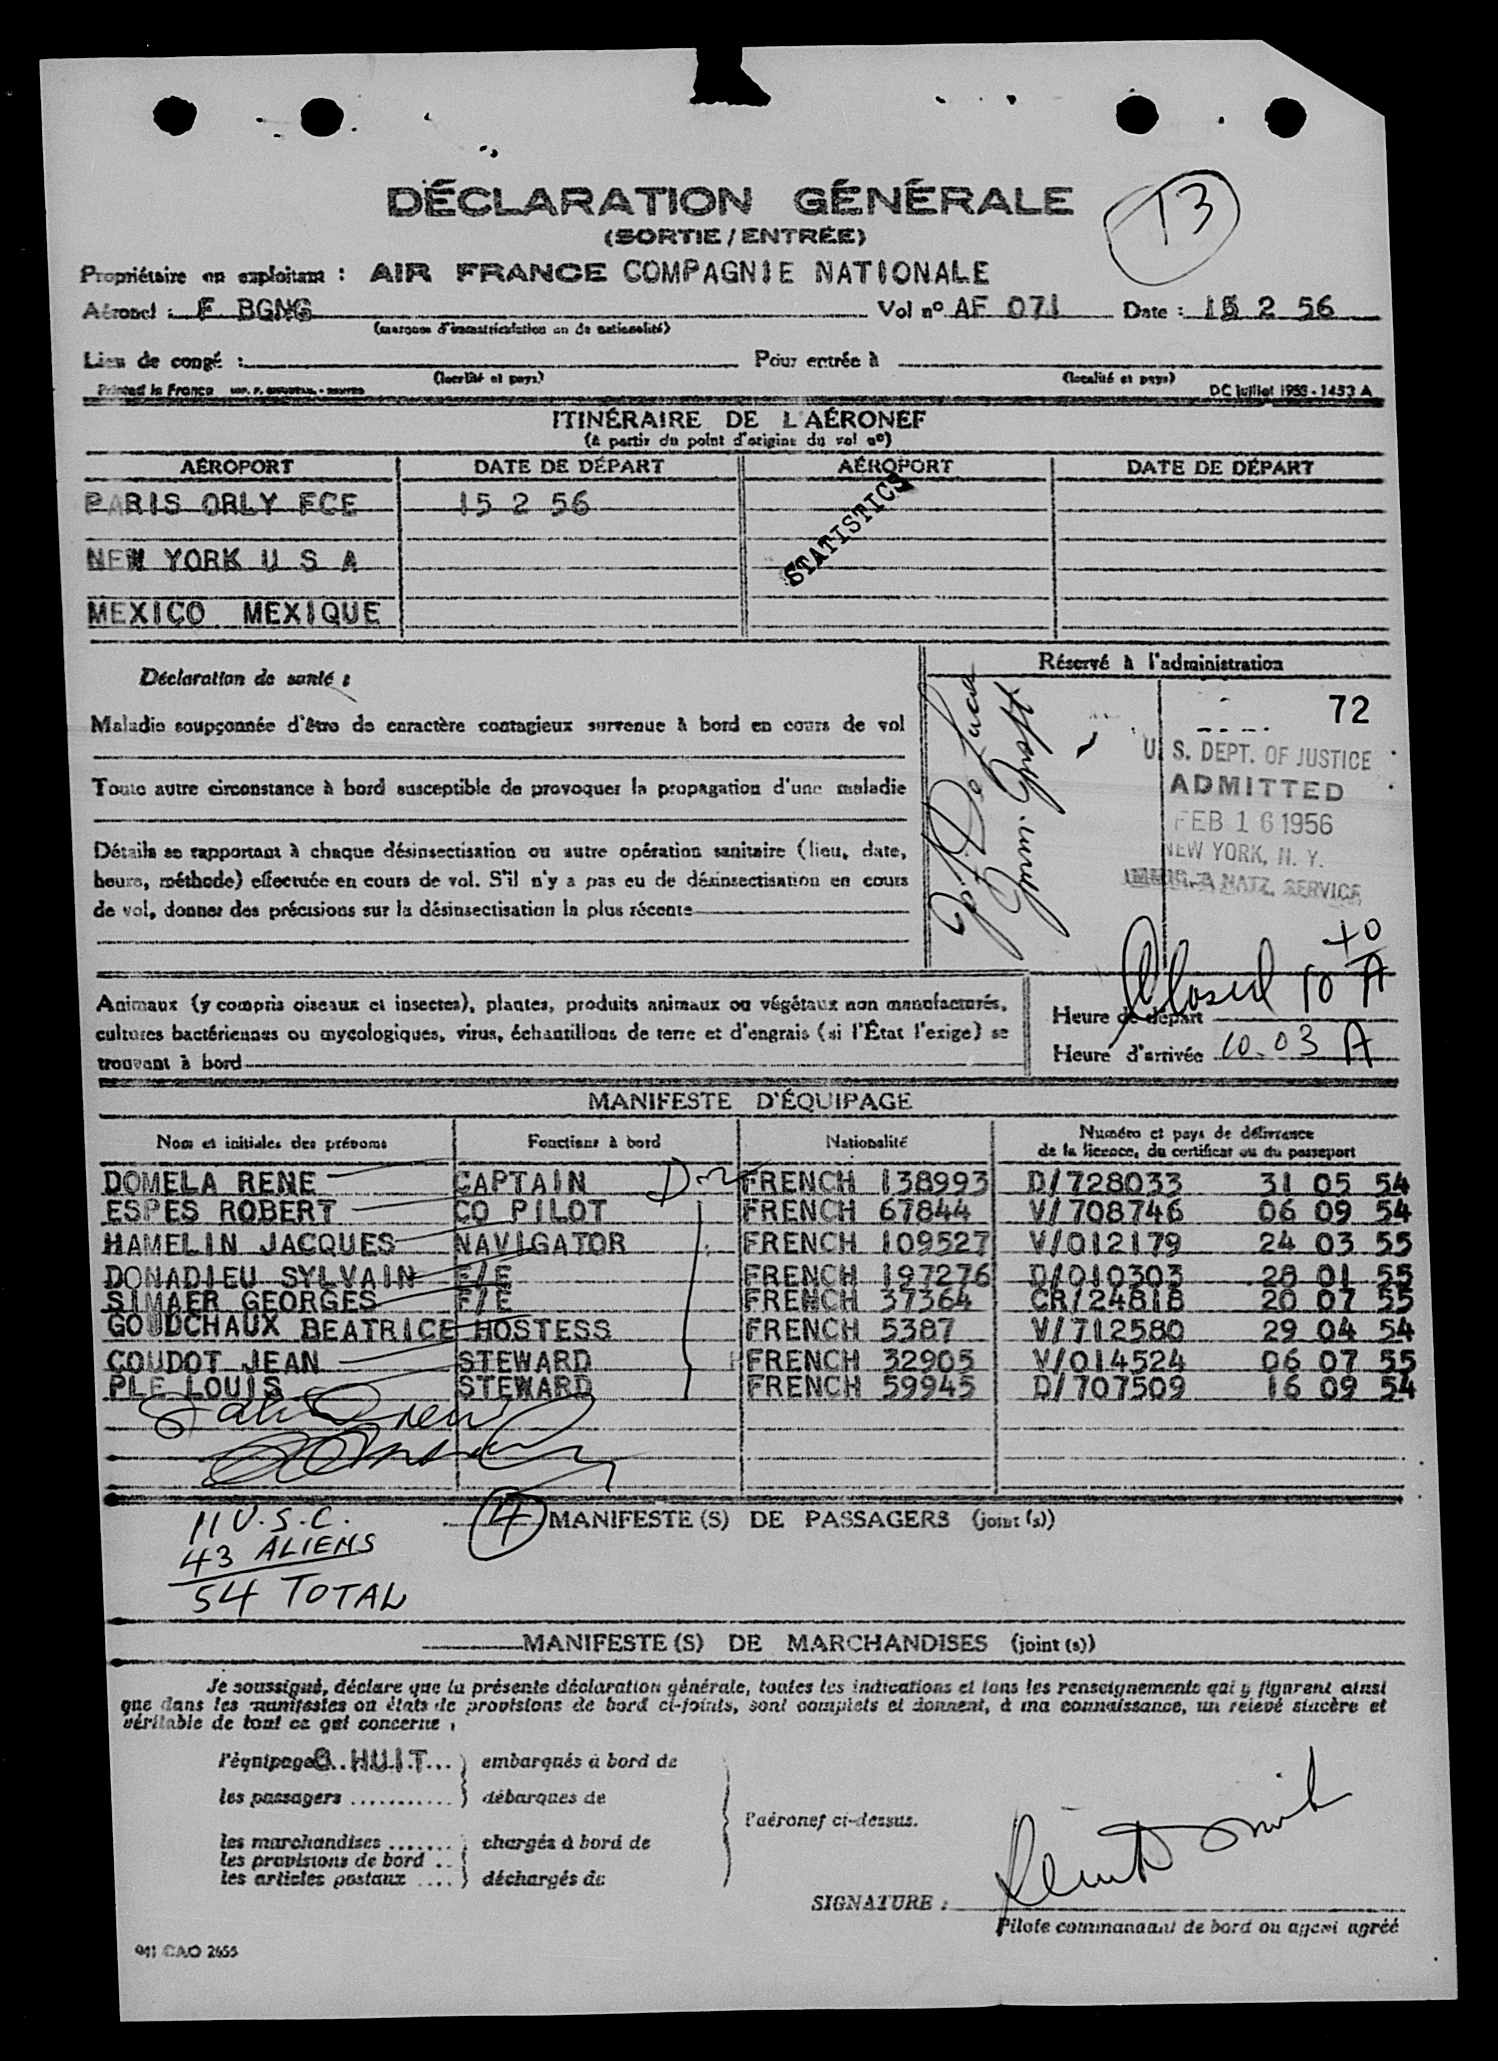 DÉCLARATION GÉNÉRALE
(SORTIE / ENTRÉE)
13
Propriétaire ou exploitant : AIR FRANCE COMPAGNIE NATIONALE
Aéronef : F BGNG Vol nº AF 071 Date : 15 2 56
(marques d'immatriculation ou de nationalité)
Lieu de congé : Pour entrée à
(localité et pays) (localité et pays)
Printed in France DC juillet 1953 - 1453 A
ITINÉRAIRE DE L'AÉRONEF
(à partir du point d'origine du vol nº)
AÉROPORT DATE DE DÉPART AÉROPORT DATE DE DÉPART
PARIS ORLY FCE 15 2 56
STATISTICS
NEW YORK U S A
MEXICO MEXIQUE
Déclaration de santé :
Réservé à l'administration
Maladie soupçonnée d'être de caractère contagieux survenue à bord en cours de vol
72
U. S. DEPT. OF JUSTICE
Toute autre circonstance à bord susceptible de provoquer la propagation d'une maladie
ADMITTED
FEB 16 1956
NEW YORK, N. Y.
IMMIG. & NATZ. SERVICE
Détails se rapportant à chaque désinsectisation ou autre opération sanitaire (lieu, date,
heure, méthode) effectuée en cours de vol. S'il n'y a pas eu de désinsectisation en cours
de vol, donner des précisions sur la désinsectisation la plus récente
Closed 10 40 A
Animaux (y compris oiseaux et insectes), plantes, produits animaux ou végétaux non manufacturés,
cultures bactériennes ou mycologiques, virus, échantillons de terre et d'engrais (si l'État l'exige) se
trouvant à bord
Heure de départ
Heure d'arrivée 10.03 A
MANIFESTE D'ÉQUIPAGE
Nom et initiales des prénoms Fonctions à bord Nationalité Numéro et pays de délivrance
de la licence, du certificat ou du passeport
DOMELA RENE CAPTAIN FRENCH 138993 D/728033 31 05 54
ESPES ROBERT CO PILOT FRENCH 67844 V/708746 06 09 54
HAMELIN JACQUES NAVIGATOR FRENCH 109527 V/012179 24 03 55
DONADIEU SYLVAIN F/E FRENCH 197276 D/010303 28 01 55
SIMAER GEORGES F/E FRENCH 37364 CR/24818 20 07 55
GOUDCHAUX BEATRICE HOSTESS FRENCH 5387 V/712580 29 04 54
COUDOT JEAN STEWARD FRENCH 32905 V/014524 06 07 55
PLE LOUIS STEWARD FRENCH 59945 D/707509 16 09 54
11 U.S.C.
43 ALIENS
54 TOTAL
4 MANIFESTE (S) DE PASSAGERS (joint (s))
MANIFESTE (S) DE MARCHANDISES (joint (s))
Je soussigné, déclare que la présente déclaration générale, toutes les indications et tous les renseignements qui y figurent ainsi
que dans les manifestes ou états de provisions de bord ci-joints, sont complets et donnent, à ma connaissance, un relevé sincère et
véritable de tout ce qui concerne :
l'équipage 8 HUIT embarqués à bord de
les passagers débarqués de
l'aéronef ci-dessus.
les marchandises chargés à bord de
les provisions de bord
les articles postaux déchargés de
SIGNATURE :
Pilote commandant de bord ou agent agréé
941 CAO 2655